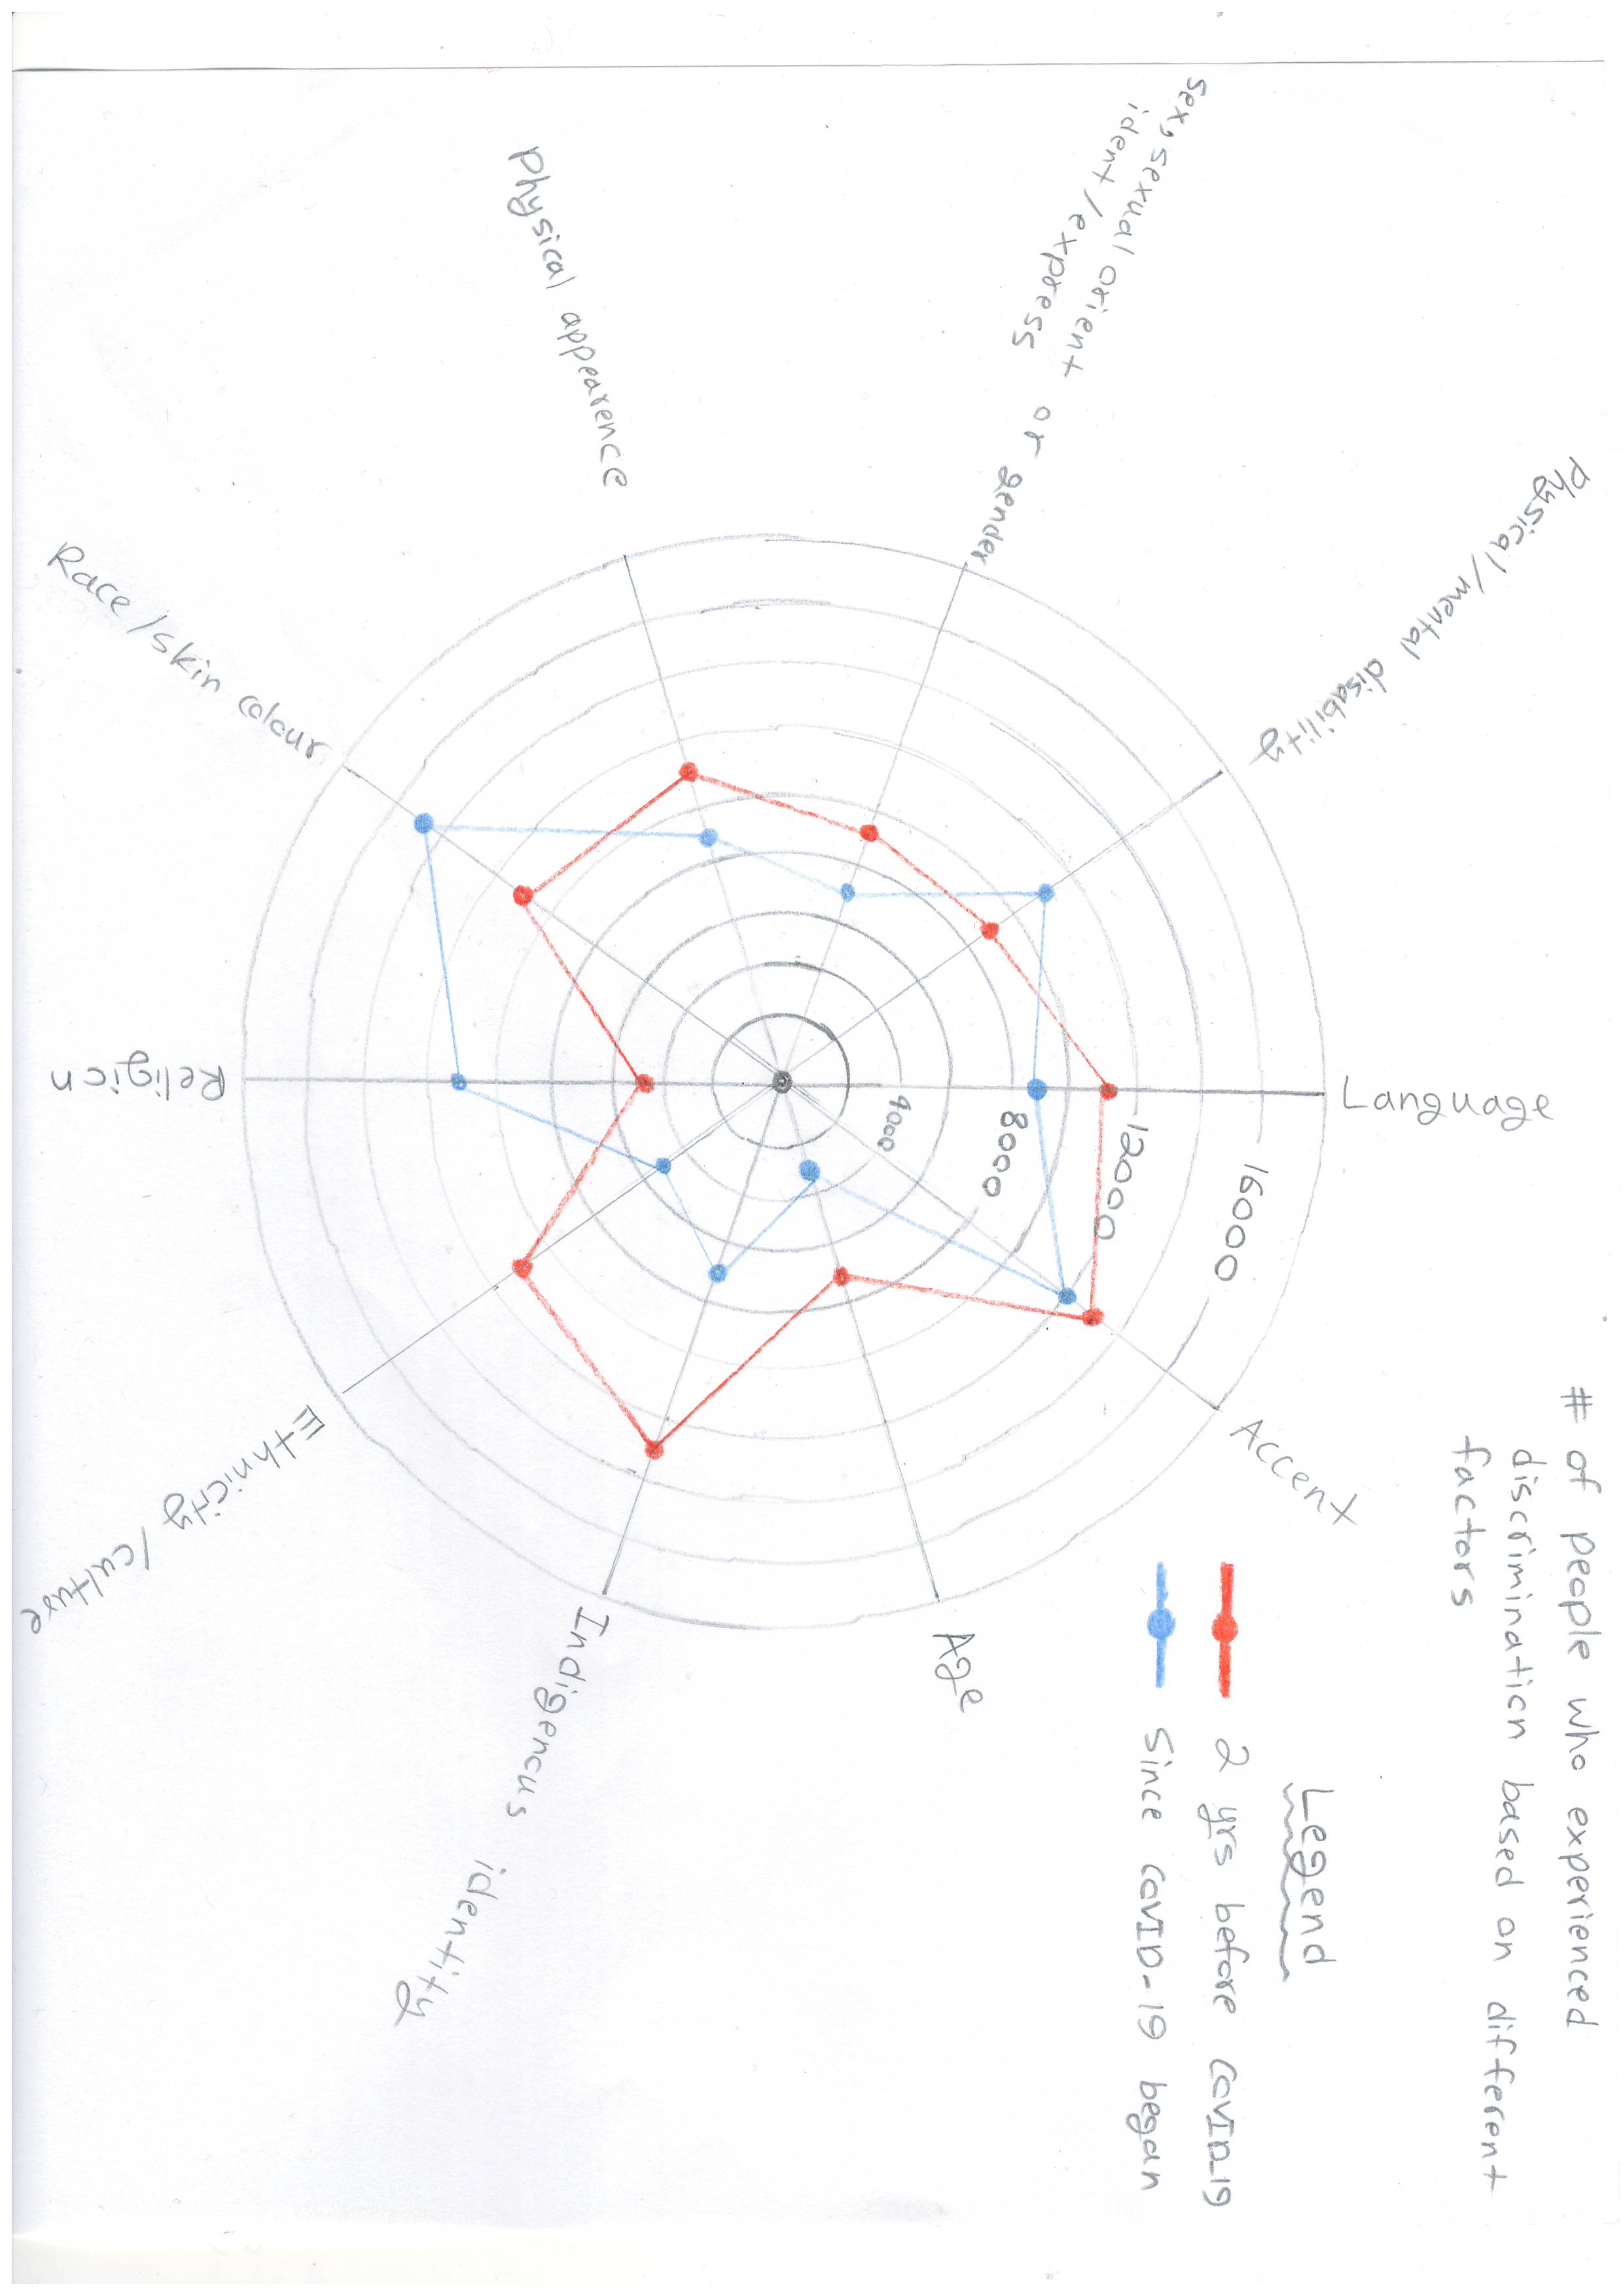 # of people who experienced
discrimination based on different
factors
Legend
2 yrs before COVID-19
Since COVID-19 began
Language
Accent
Age
Indigenous identity
Ethnicity/culture
Religion
Race/skin colour
Physical appearence
sex, sexual orient or gender
ident/express
Physical/mental disability
16000
12000
8000
4000